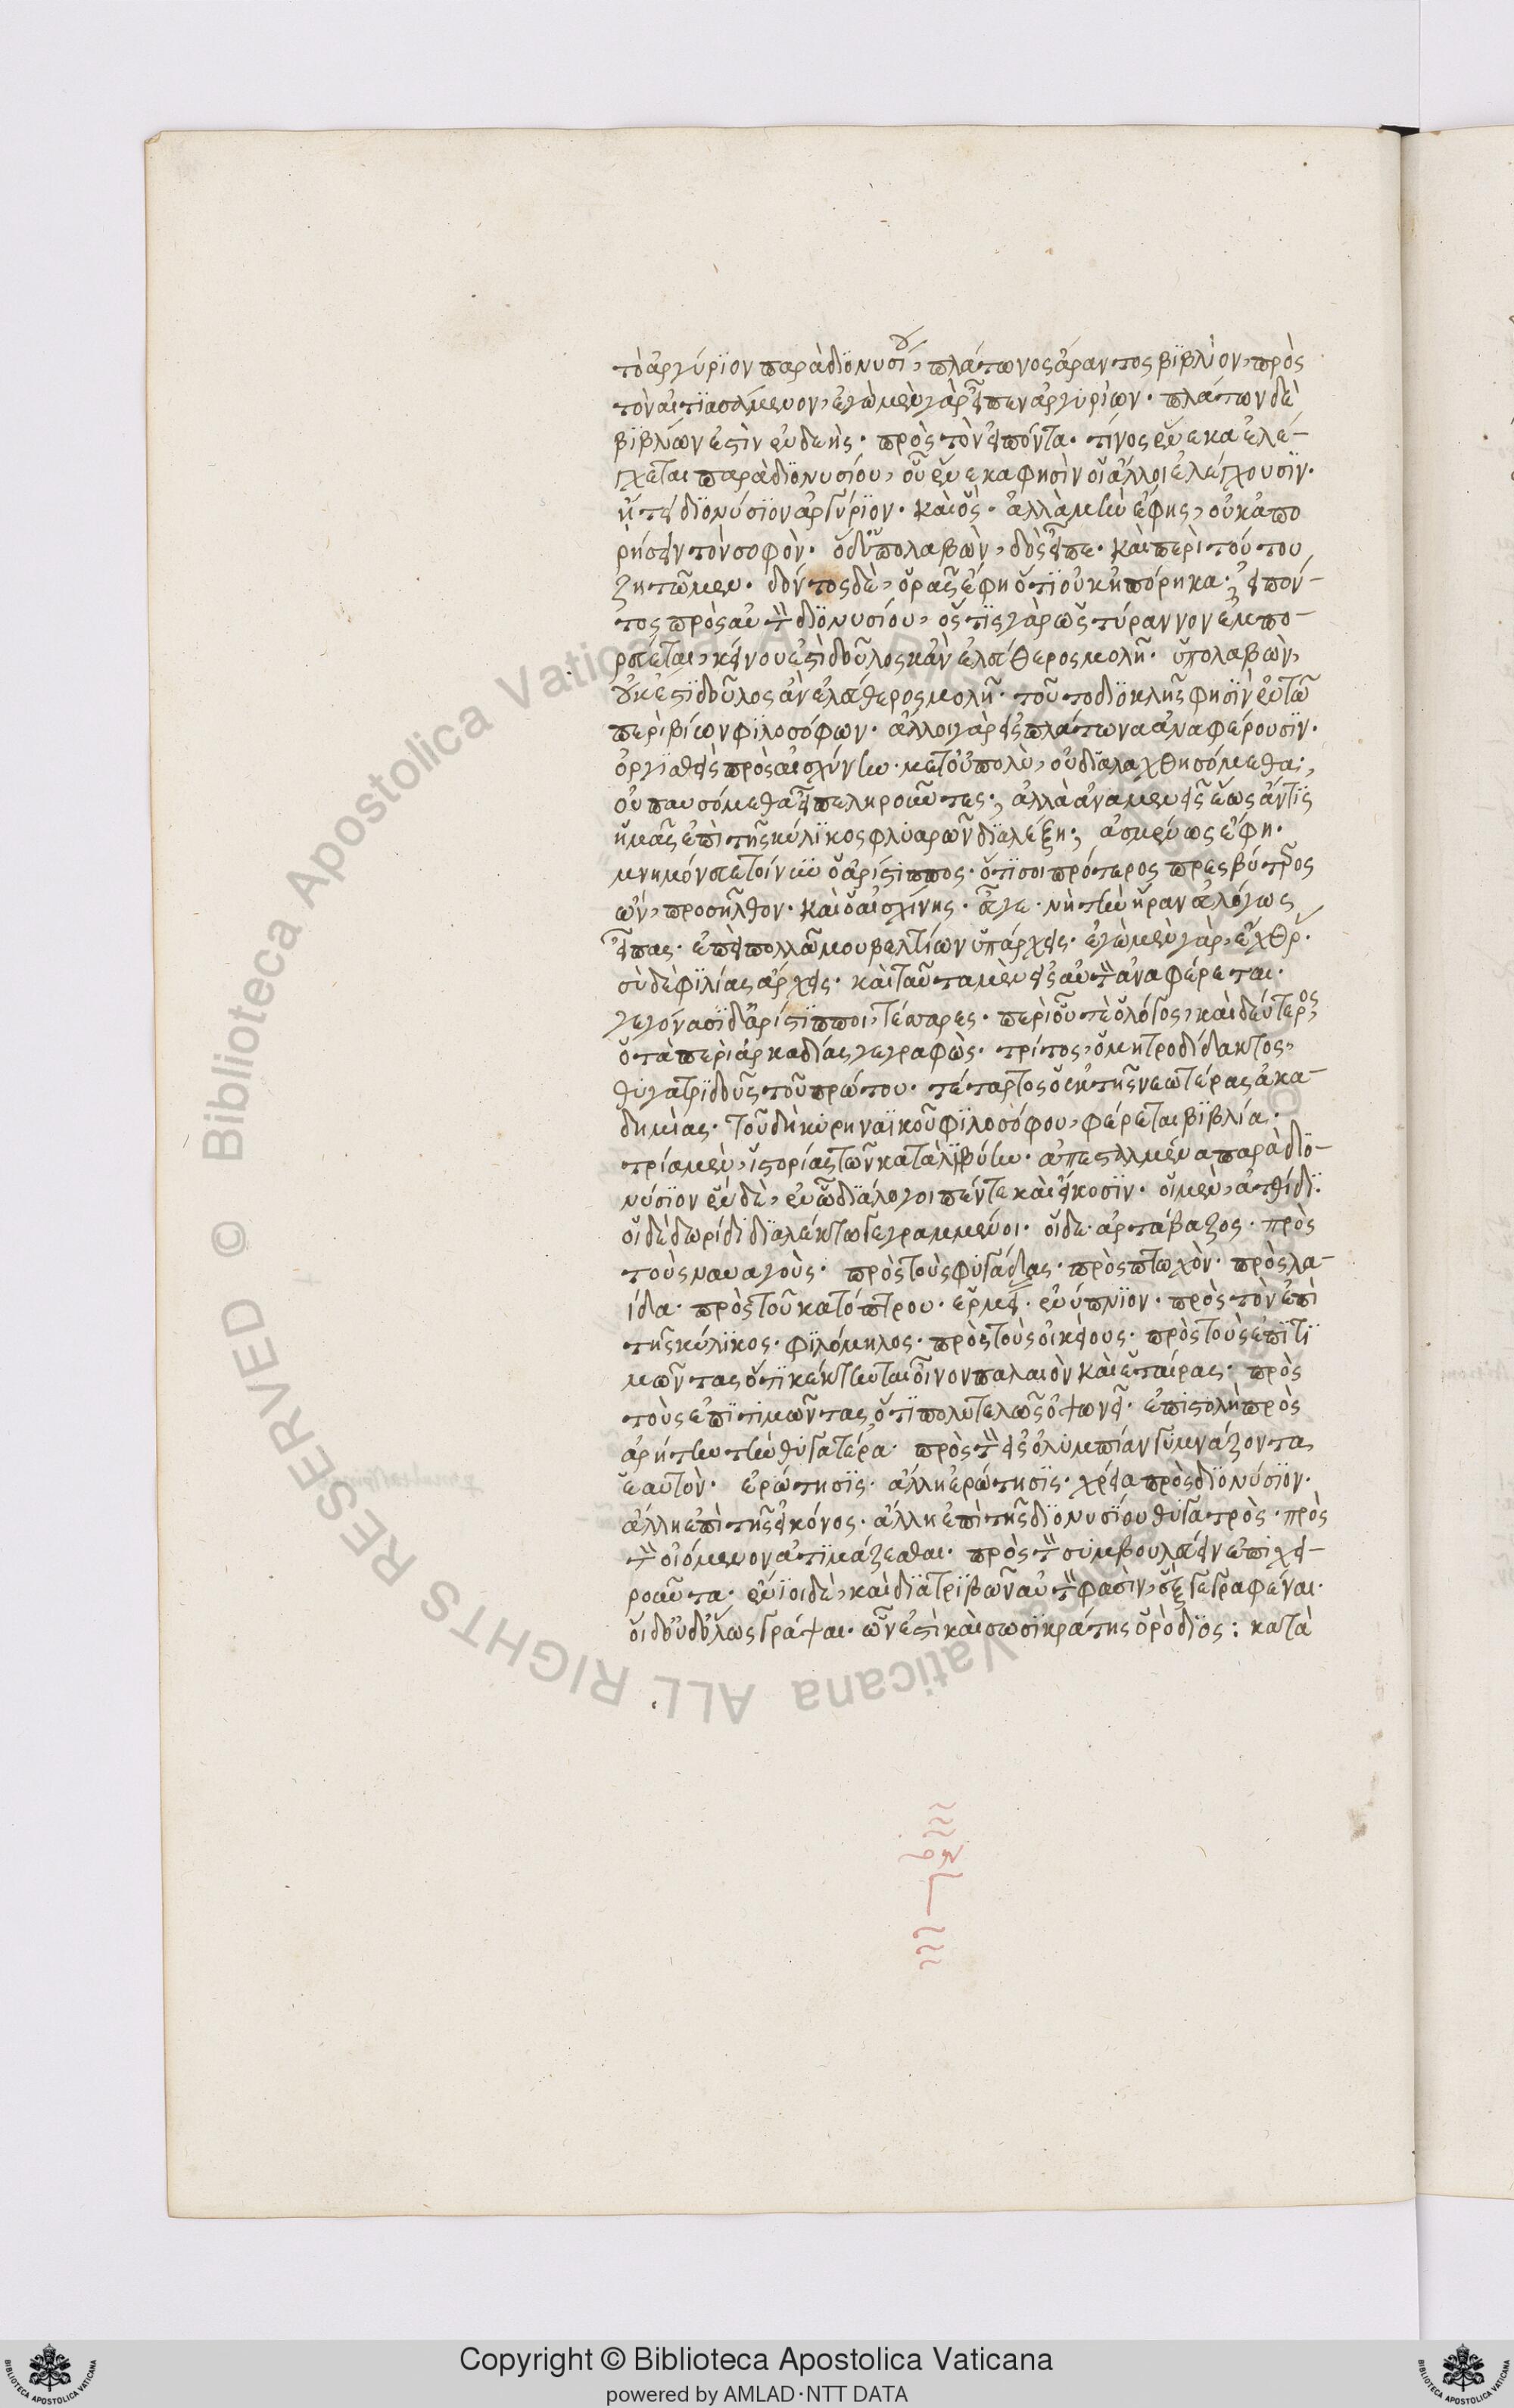 τὸ ἀργύριον παρὰ διονυσίου, πλάτωνος ἄραντος βιβλίον, πρὸς
τὸν αἰτιασάμενον, ἐγὼ μὲν γὰρ εἶπεν ἀργυρίων· πλάτων δὲ
βιβλίων ἐστὶν ἐνδεής· πρὸς τὸν εἰπόντα· τίνος ἕνεκα ἐλέ-
γχεται παρὰ διονυσίου, οὗ ἕνεκα φησὶν οἱ ἄλλοι ἐλέγχουσιν·
ᾔτει διονύσιον ἀργύριον· καὶ ὅς· ἀλλὰ μὴν ἔφης, οὐκ ἀπο
ρήσειν τὸν σοφόν· ὁ δ' ὑπολαβὼν, δὸς εἶπε· καὶ περὶ τούτου
ζητῶμεν· δόντος δὲ, ὁρᾷς ἔφη ὅτι οὐκ ἠπόρηκα; εἰπόν-
τος πρὸς αὐτὸν διονυσίου, ὅστις γὰρ ὡς τύραννον ἐμπο-
ρεύεται, κείνου ἐστὶ δοῦλος κἂν ἐλεύθερος μολῇ· ὑπολαβὼν,
οὐκ ἔστι δοῦλος ἂν ἐλεύθερος μολῇ· τοῦτο διοκλῆς φησὶν ἐν τῶ
περὶ βίων φιλοσόφων· ἄλλοι γὰρ εἰς πλάτωνα ἀναφέρουσιν·
ὀργισθεὶς πρὸς αἰσχίνην· μετ' οὐ πολὺ, οὐ διαλαχθησόμεθα;
οὐ παυσόμεθα εἶπε ληροῦντες; ἀλλὰ ἀναμένεις ἕως ἄν τις
ἡμᾶς ἐπὶ τῆς κύλικος φλυαρῶν διαλέξη; ἀσμένως ἔφη·
μνημόνευε τοίνυν ὁ ἀρίστιππος· ὅτι σοι πρότερος πρεσβύτερος
ὢν, προσῆλθον· καὶ ὁ αἰσχίνης· εὖγε· νὴ τὴν ἥραν εὐλόγως
εἶπας· ἐπεὶ πολλῶ μου βελτίων ὑπάρχεις· ἐγὼ μὲν γὰρ, ἔχθρας·
σὺ δὲ φιλίας ἄρχεις· καὶ ταῦτα μὲν εἰς αὐτὸν ἀναφέρεται·
γεγόνασι δ' ἀρίστιπποι, τέσσαρες· περὶ οὗ τε ὁ λόγος, καὶ δεύτερος,
ὁ τὰ περὶ ἀρκαδίας γεγραφώς· τρίτος, ὁ μητροδίδακτος,
θυγατριδοῦς τοῦ πρώτου· τέταρτος ὁ ἐκ τῆς νεωτέρας ἀκα-
δημίας· τοῦ δὴ κυρηναϊκοῦ φιλοσόφου, φέρεται βιβλία·
τρία μὲν, ἱστορίας τῶν κατὰ λιβύην· ἀπεσταλμένα παρὰ διο-
νύσιον ἓν δὲ, ἐν ὧ διάλογοι πέντε καὶ εἴκοσιν· οἱ μὲν, ἀτθίδι·
οἱ δὲ δωρίδι διαλέκτω γεγραμμένοι· οἵδε· ἀρτάβαζος· πρὸς
τοὺς ναυαγούς· πρὸς τοὺς φυγάδας· πρὸς πτωχόν· πρὸς λα-
ίδα· πρὸς τοῦ κατόπτρου· ἑρμεί· ἐνύπνιον· πρὸς τὸν ἐπὶ
τῆς κύλικος· φιλόμηλος· πρὸς τοὺς οἰκείους· πρὸς τοὺς ἐπιτι
μῶντας ὅτι κέκτηται οἶνον παλαιὸν καὶ ἑταίρας· πρὸς
τοὺς ἐπιτιμῶντας, ὅτι πολυτελῶς ὀψωνεῖ· ἐπιστολὴ πρὸς
ἀρήτην τὴν θυγατέρα· πρὸς τὸν εἰς ὀλυμπίαν γυμνάζοντα
ἑαυτόν· ἐρώτησις· ἄλλη ἐρώτησις· χρεία πρὸς διονύσιον·
ἄλλη ἐπὶ τῆς εἰκόνος· ἄλλη ἐπὶ τῆς διονυσίου θυγατρός· πρὸς
τὸν οἰόμενον ἀτιμάζεσθαι· πρὸς τὸν συμβουλεύειν ἐπιχει-
ροῦντα· ἔνιοι δὲ, καὶ διατριβῶν αὐτὸν φασὶν, ἓξ γεγραφέναι·
οἱ δ' οὐδ' ὅλως γράψαι· ὧν ἐστὶ καὶ σωσικράτης ὁ ῥόδιος: κατὰ